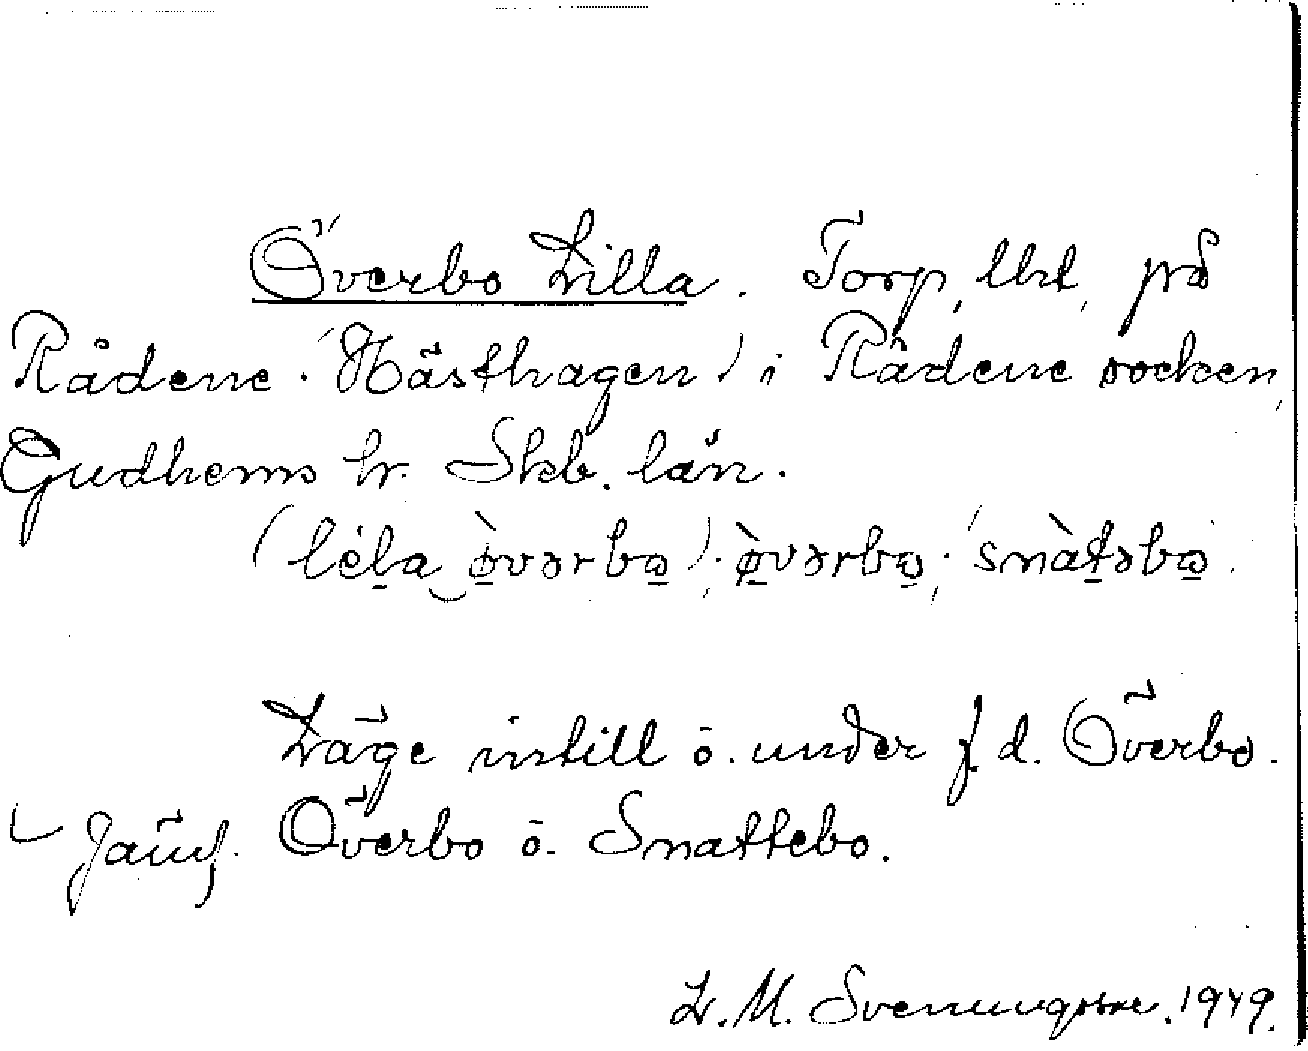 Överbo Lilla. Torp, lht, på
Rådene (Hästhagen) i Rådene socken,
Gudhems hr. Skb. län.
(léla ø̀vərbo); ø̀vərbo; snàtəbo.
Läge intill o. under f. d. Överbo.
Jämf. Överbo o. Snattebo.
L. M. Svenungsson. 1949.